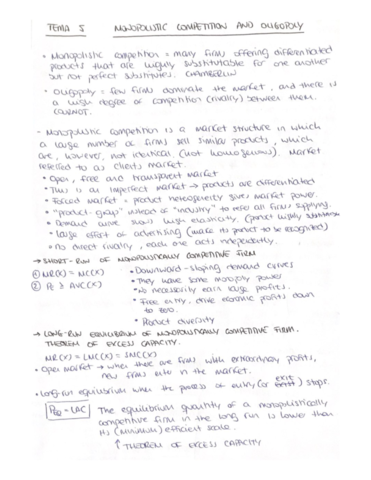 TEMA 5 MONOPOLISTIC COMPETITION AND OLIGOPOLY
• Monopolistic competition = many firms offering differentiated
products that are highly substitutable for one another
but not perfect substitutes. CHAMBERLIN
• Oligopoly = few firms dominate the market, and there is
a high degree of competition (rivalry) between them.
COURNOT.
- Monopolistic competition is a market structure in which
a large number of firms sell similar products, which
are, however, not identical (not homogeneous). Market
referred to as clients market.
• Open, free and transparent market
• This is an imperfect market → products are differentiated
• Forced market = product heterogeneity gives market power.
• "product group" instead of "industry" to refer all firms supplying.
• Demand curve shows high elasticity. (product highly
• Large effort of advertising (make its product to be recognized)
• No direct rivalry, each one acts independently.
→ SHORT-RUN OF MONOPOLISTICALLY COMPETITIVE FIRM
① MR(X) = MC(X) • Downward-sloping demand curves
② PE ≥ AVC(X) • They have some monopoly power
• No necessarily earn large profits.
• Free entry, drive economic profits down
to zero.
• Product diversity
→ LONG-RUN EQUILIBRIUM OF MONOPOLISTICALLY COMPETITIVE FIRM.
THEOREM OF EXCESS CAPACITY.
MR(X) = LMC(X) = SMC(X)
• Open market → when there are firms with extraordinary profits,
new firms enter in the market.
• Long-run equilibrium when the process of entry (or exit) stops.
= LAC The equilibrium quantity of a monopolistically
competitive firm in the long run is lower than
its (minimum) efficient scale.
↑ THEOREM OF EXCESS CAPACITY